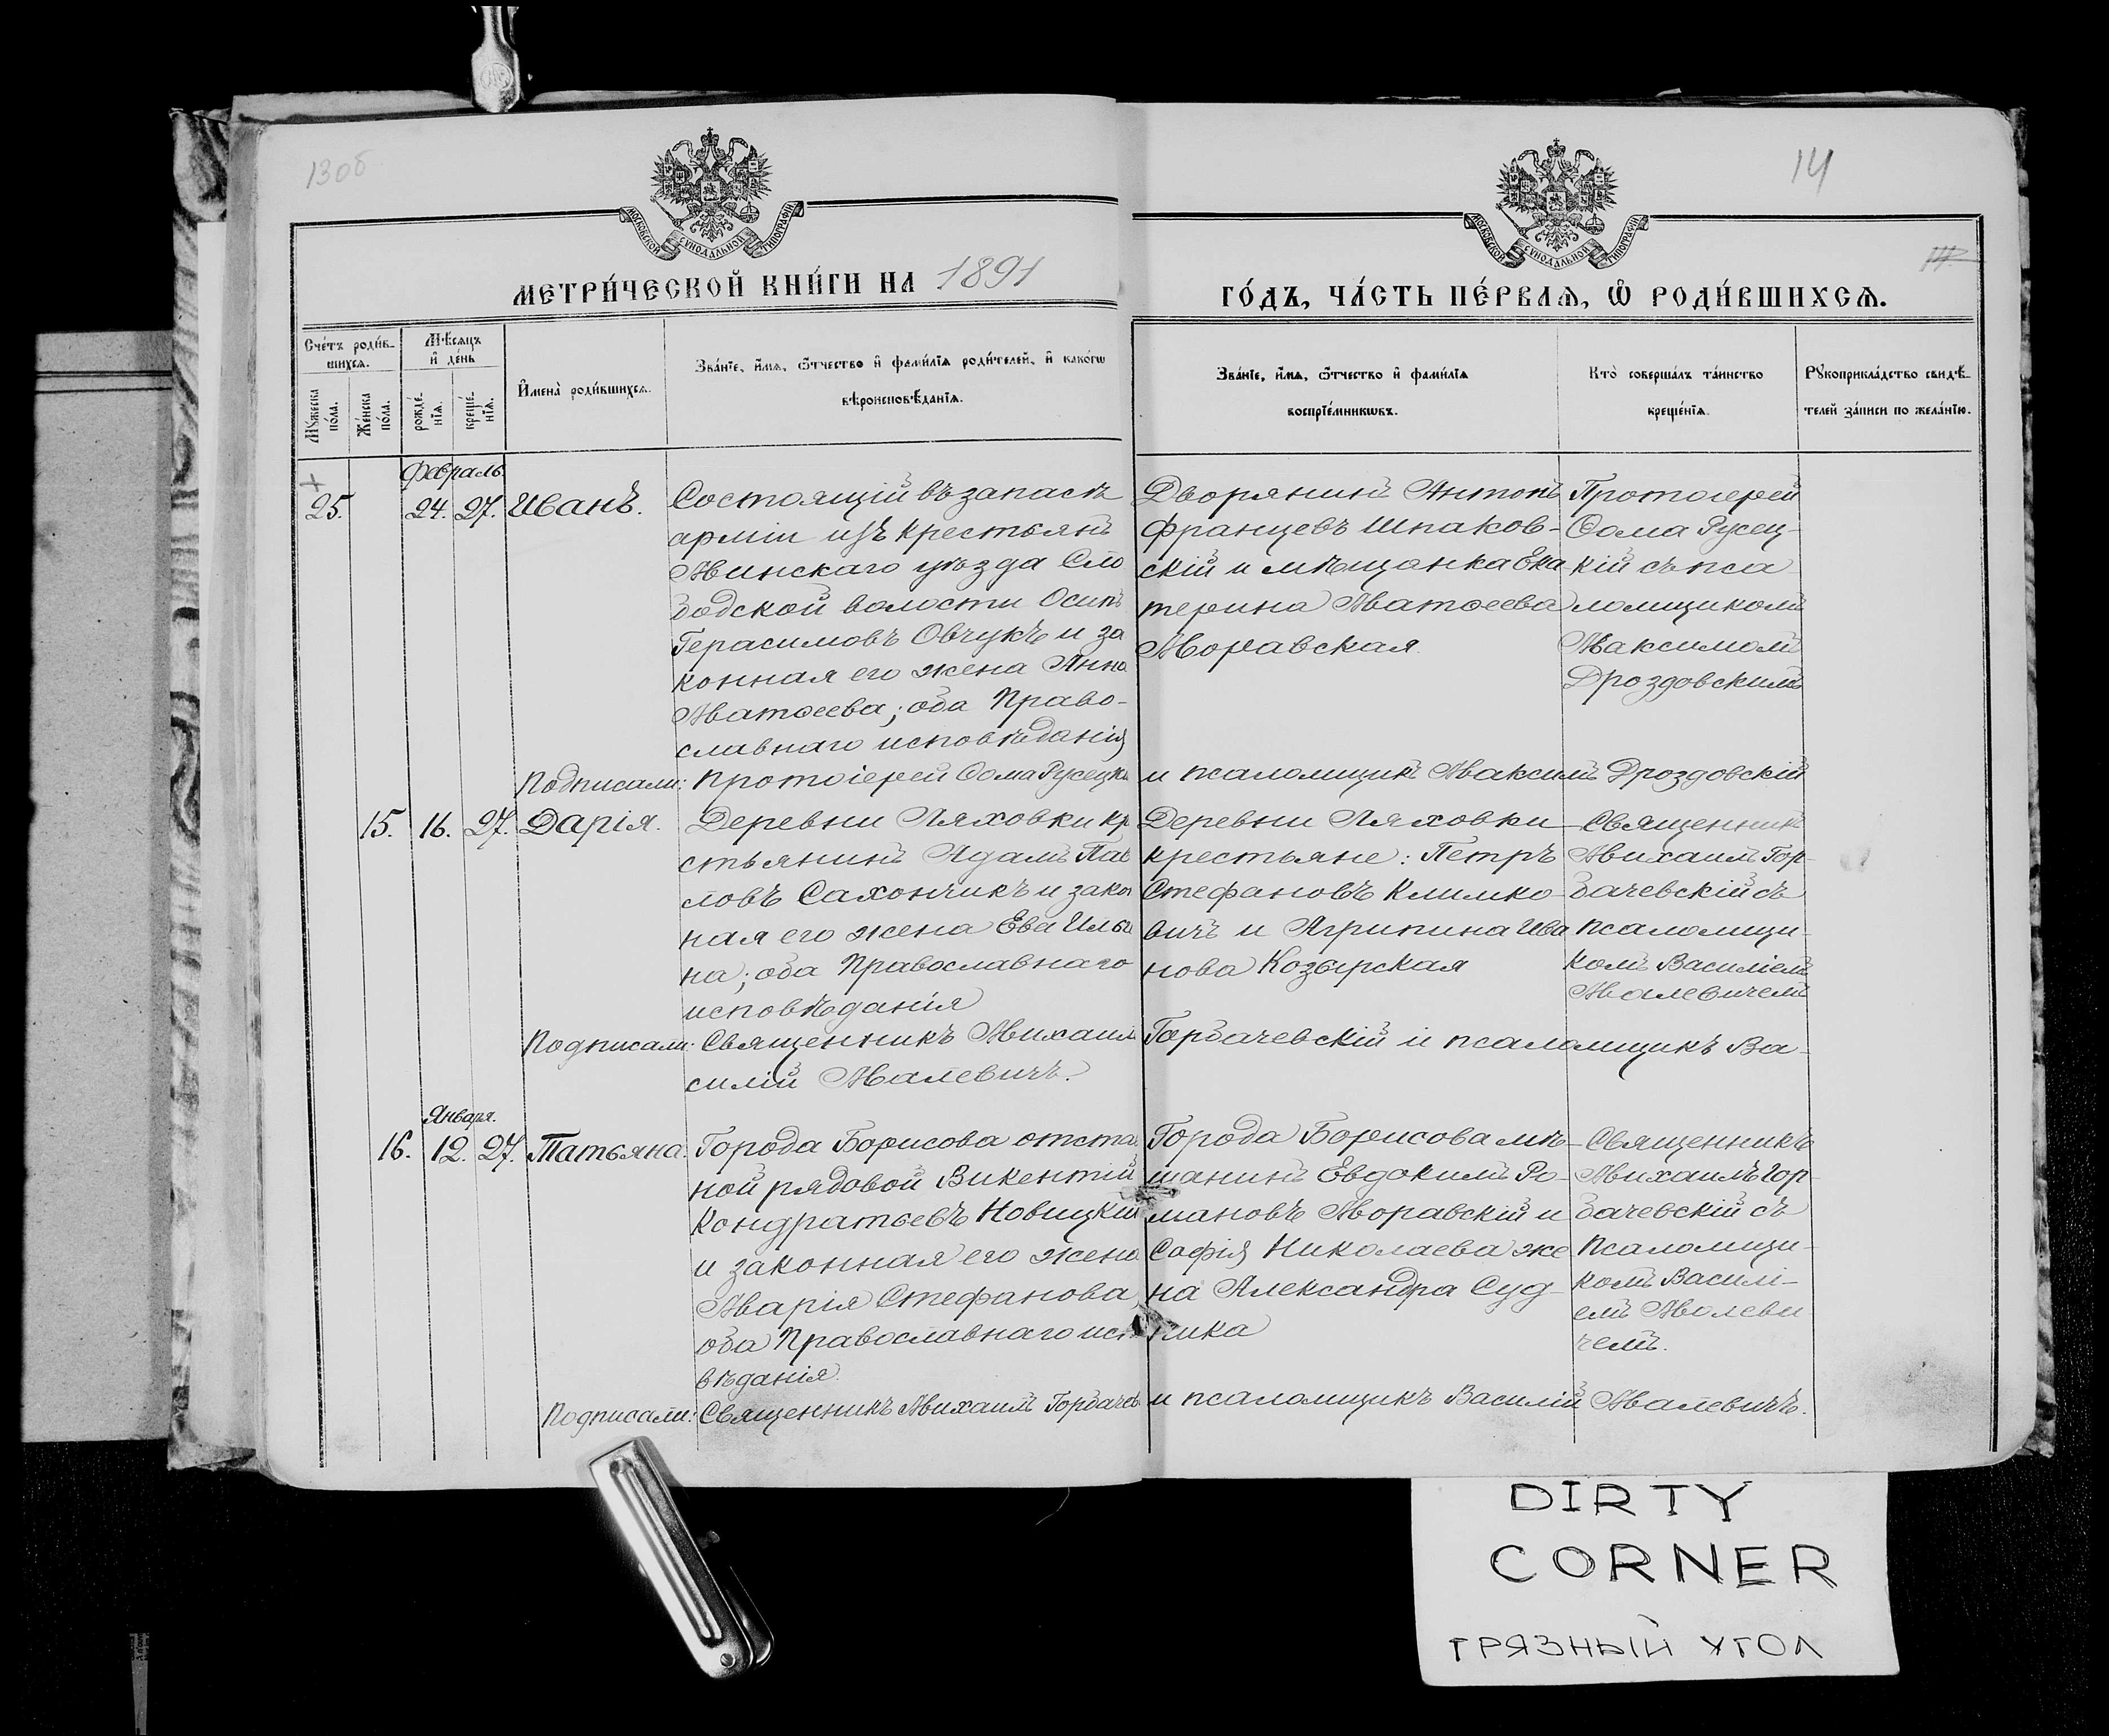 13об
14
МОСКОВСКОЙ СѴНОДАЛЬНОЙ ТИПОГРАФІИ
МОСКОВСКОЙ СѴНОДАЛЬНОЙ ТИПОГРАФІИ
МЕТРИ́ЧЕСКОЙ КНИ́ГИ НА 1891
ГО́ДЪ, ЧА́СТЬ ПЕ́РВАѦ, Ѿ РОДИ́ВШИХСѦ.
Сче́тъ роди́в-
шихсѧ.
Мѣ́сѧцъ
и҆ де́нь
Мꙋ́жеска по́ла.
Же́нска по́ла.
рожде́-
нїѧ.
креще́-
нїѧ.
И҆мена̀ роди́вшихсѧ.
Зва́нїе, и҆́мѧ, ѻ҆́тчество и҆ фами́лїѧ роди́телей, и҆ како́гѡ
вѣроисповѣ́данїѧ.
Зва́нїе, и҆́мѧ, ѻ҆́тчество и҆ фами́лїѧ
воспрїе́мникѡвъ.
Кто̀ соверша́лъ та́инство
креще́нїѧ.
Рꙋкоприкла́дство свидѣ́-
телей за́писи по жела́нїю.
Февраль
25. 24. 27. Иванъ.
Состоящій въ запасѣ
арміи изъ крестьянъ
Минскаго уѣзда Сло
бодской волости Осипъ
Герасимовъ Овчукъ и за
конная его жена Анна
Матѳеева; оба Право-
славнаго исповѣданія
Дворянинъ Антонъ
Францевъ Шпаков-
скій и мѣщанка Ека
терина Матѳеева
Моравская.
Протоіерей
Ѳома Русец-
кій съ пса
ломщикомъ
Максимомъ
Дроздовскимъ
Подписали: Протоіерей Ѳома Русецкі и псаломщикъ Максимъ Дроздовскій
15. 16. 27. Дарія.
Деревни Ляховки кр
стьянинъ Адамъ Пав
ловъ Сахончикъ и закон
ная его жена Ева Ильи
на; оба Православнаго
исповѣданія
Деревни Ляховки
крестьяне: Петръ
Стефановъ Климко-
вичъ и Агрипина Ива
нова Козырская
Священникъ
Михаилъ Гор-
бачевскій съ
псаломщи-
комъ Василіемъ
Малевичемъ
Подписали: Священникъ Михаилъ Горбачевскій и псаломщикъ Ва-
силій Малевичъ.
Января.
16. 12. 27. Татьяна.
Города Борисова отста
ной рядовой Викентій
Кондратьевъ Новицкій
и законная его жена
Марія Стефанова
оба Православнаго исп
вѣданія.
Города Борисова мѣ-
щанинъ Евдокимъ Ро-
мановъ Моравскій и
Софія Николаева же
на Александра Суд-
ника
Священникъ
Михаилъ Гор-
бачевскій съ
Псаломщи-
комъ Василі-
емъ Малеви
чемъ.
Подписали: Священникъ Михаилъ Горбачев и псаломщикъ Василій Малевичъ.
DIRTY
CORNER
ГРЯЗНЫЙ УГОЛ